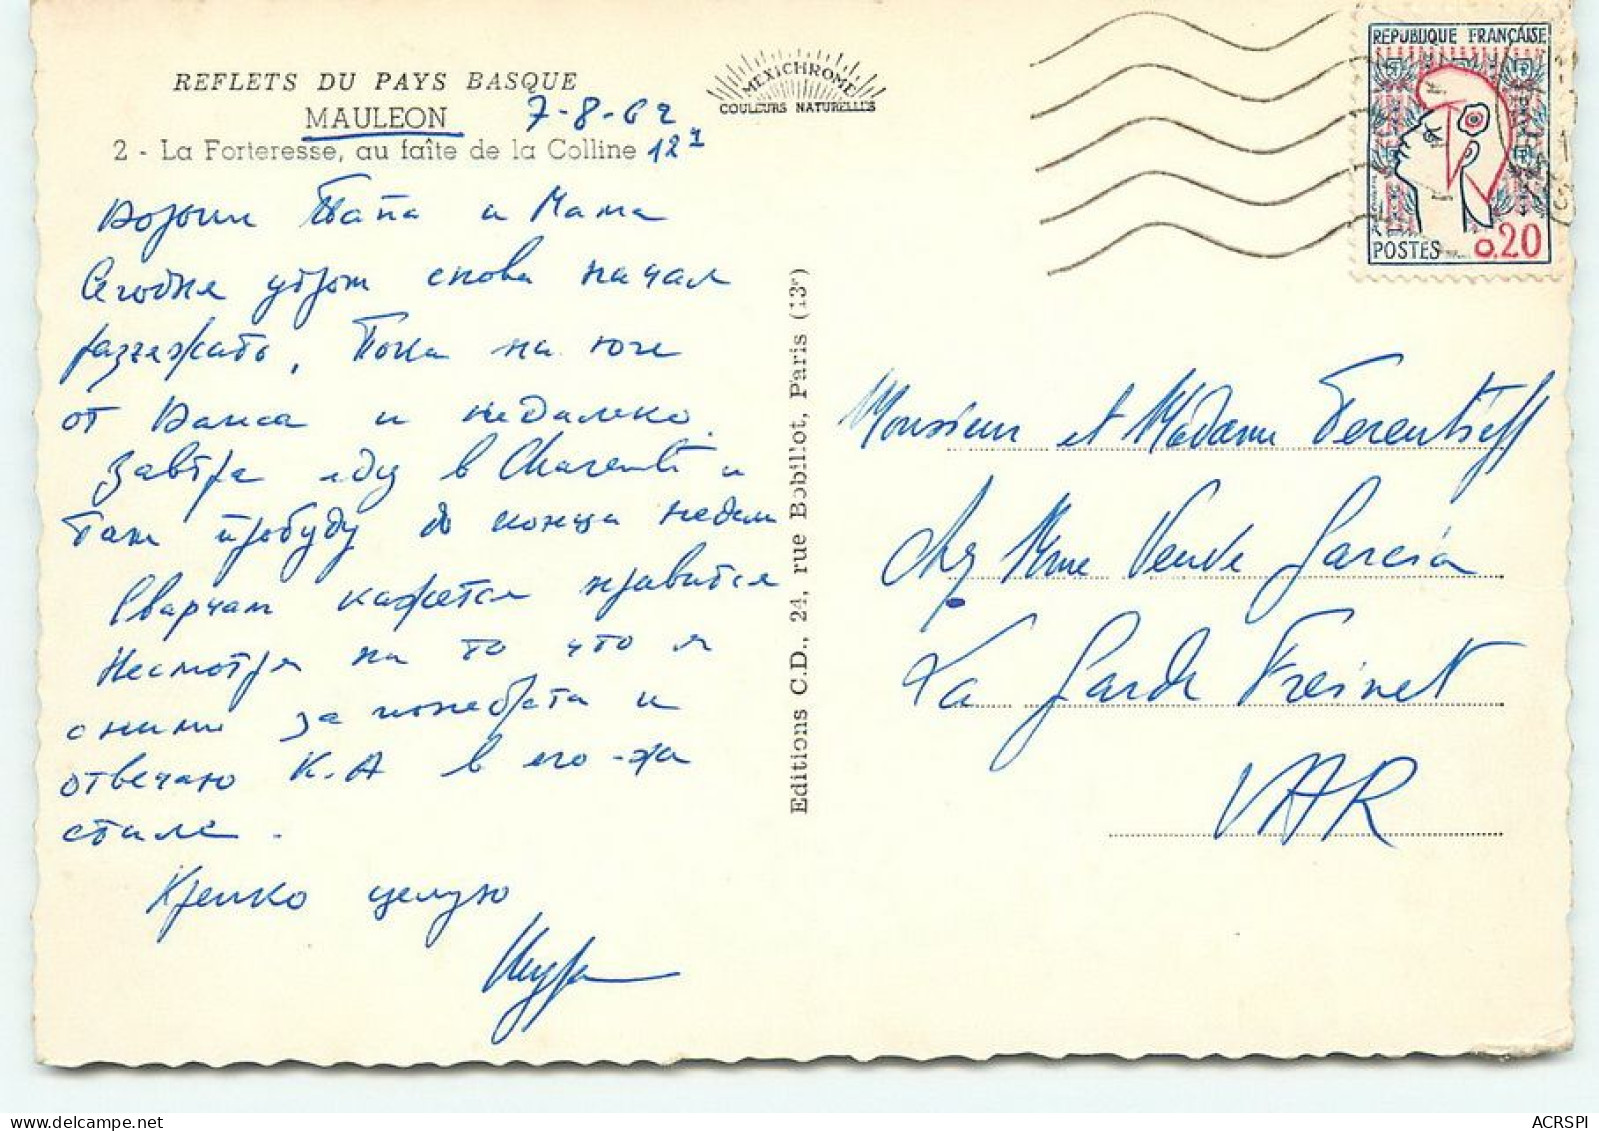 REFLETS DU PAYS BASQUE
MAULEON 7-8-62
2 - La Forteresse, au faîte de la Colline 12
MEXICHROME
COULEURS NATURELLES
REPUBLIQUE FRANÇAISE
POSTES 0.20
Папа и Мама
Сегодня утром снова начал
разъезжать. Пока на юге
от Вайса и недалеко.
Завтра еду в Charente и
там пробуду до конца недели
кажется нравится
Несмотря на то что я
с ними за и
отвечаю К.А в его-же
стиле.
Крепко целую
Шура
Editions C.D., 24, rue Bobillot, Paris (13e)
Monsieur et Madame Terentieff
chez Mme Veuve Garcia
La Garde Freinet
VAR
ACRSPI